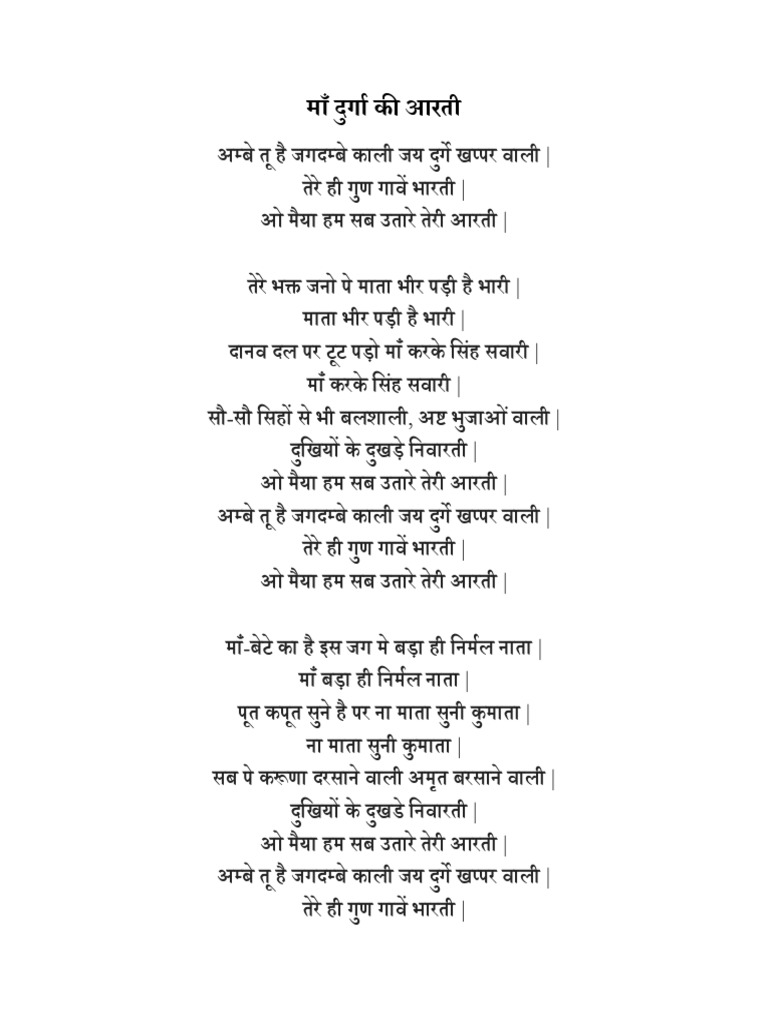 माँ दुर्गा की आरती
अम्बे तू है जगदम्बे काली जय दुर्गे खप्पर वाली |
तेरे ही गुण गावें भारती |
ओ मैया हम सब उतारे तेरी आरती |
तेरे भक्त जनो पे माता भीर पड़ी है भारी |
माता भीर पड़ी है भारी |
दानव दल पर टूट पड़ो माँ करके सिंह सवारी |
माँ करके सिंह सवारी |
सौ-सौ सिहों से भी बलशाली, अष्ट भुजाओं वाली |
दुखियों के दुखड़े निवारती |
ओ मैया हम सब उतारे तेरी आरती |
अम्बे तू है जगदम्बे काली जय दुर्गे खप्पर वाली |
तेरे ही गुण गावें भारती |
ओ मैया हम सब उतारे तेरी आरती |
माँ-बेटे का है इस जग मे बड़ा ही निर्मल नाता |
माँ बड़ा ही निर्मल नाता |
पूत कपूत सुने है पर ना माता सुनी कुमाता |
ना माता सुनी कुमाता |
सब पे करूणा दरसाने वाली अमृत बरसाने वाली |
दुखियों के दुखडे निवारती |
ओ मैया हम सब उतारे तेरी आरती |
अम्बे तू है जगदम्बे काली जय दुर्गे खप्पर वाली |
तेरे ही गुण गावें भारती |